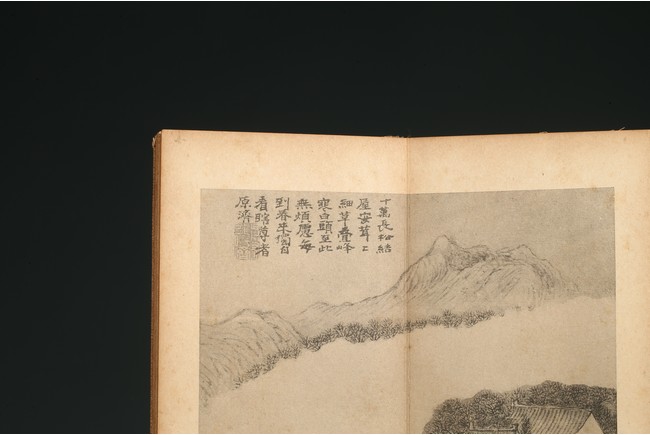 十萬長松結
屋安茸上
細草疊峰
寒白頭至此
無煩應每
到春來獨自
看瞎尊者
原濟